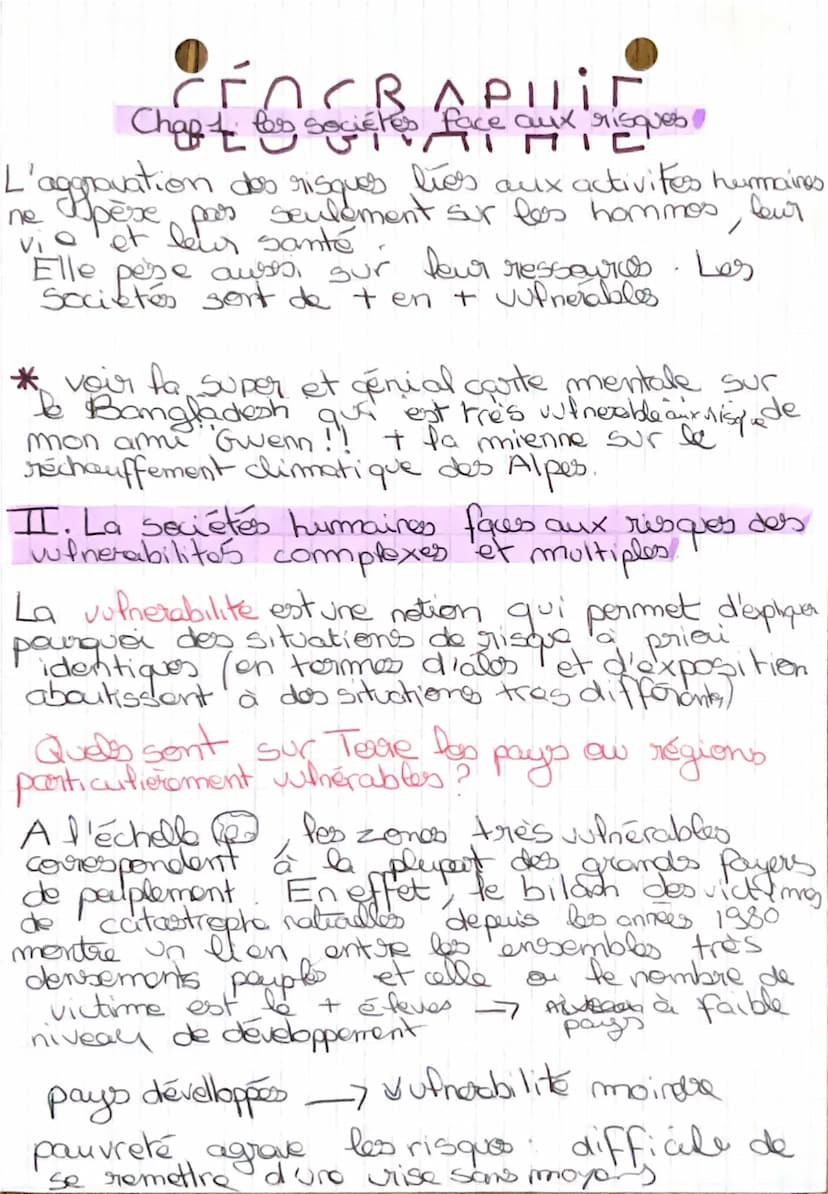 GÉOGRAPHIE
Chap 1: les sociétés face aux risques
L'aggravation des risques liés aux activités humaines
ne pèse pas seulement sur les hommes, leur
vie et leur santé.
Elle pèse aussi sur leur ressources. Les
sociétés sont de + en + vulnérables
* voir la super et génial carte mentale sur
le Bangladesh qui est très vulnerable aux risque de
mon ami Gwenn !! + la mienne sur le
réchauffement climatique des Alpes.
II. La sociétés humaines faces aux risques des
vulnerabilités complexes et multiples
La vulnerabilité est une notion qui permet d'expliquer
pourquoi des situations de risque à priori
identiques (en termes d'aléas et d'exposition
aboutissent à des situations tres différentes)
Quels sont sur Terre les pays ou régions
particulierement vulnérables ?
A l'échelle, les zones très vulnérables
correspondent à la plupart des grands foyers
de peuplement. En effet, le bilan des victimes
de catastrophe naturelles depuis les années 1980
montre un lien entre les ensembles très
densements peuplés et celle ou le nombre de
victime est le + éleves → pays à faible
niveau de développement
pays dévelloppés → vulnerabilité moindre
pauvreté agrave les risques : difficile de
se remettre d'une crise sans moyens